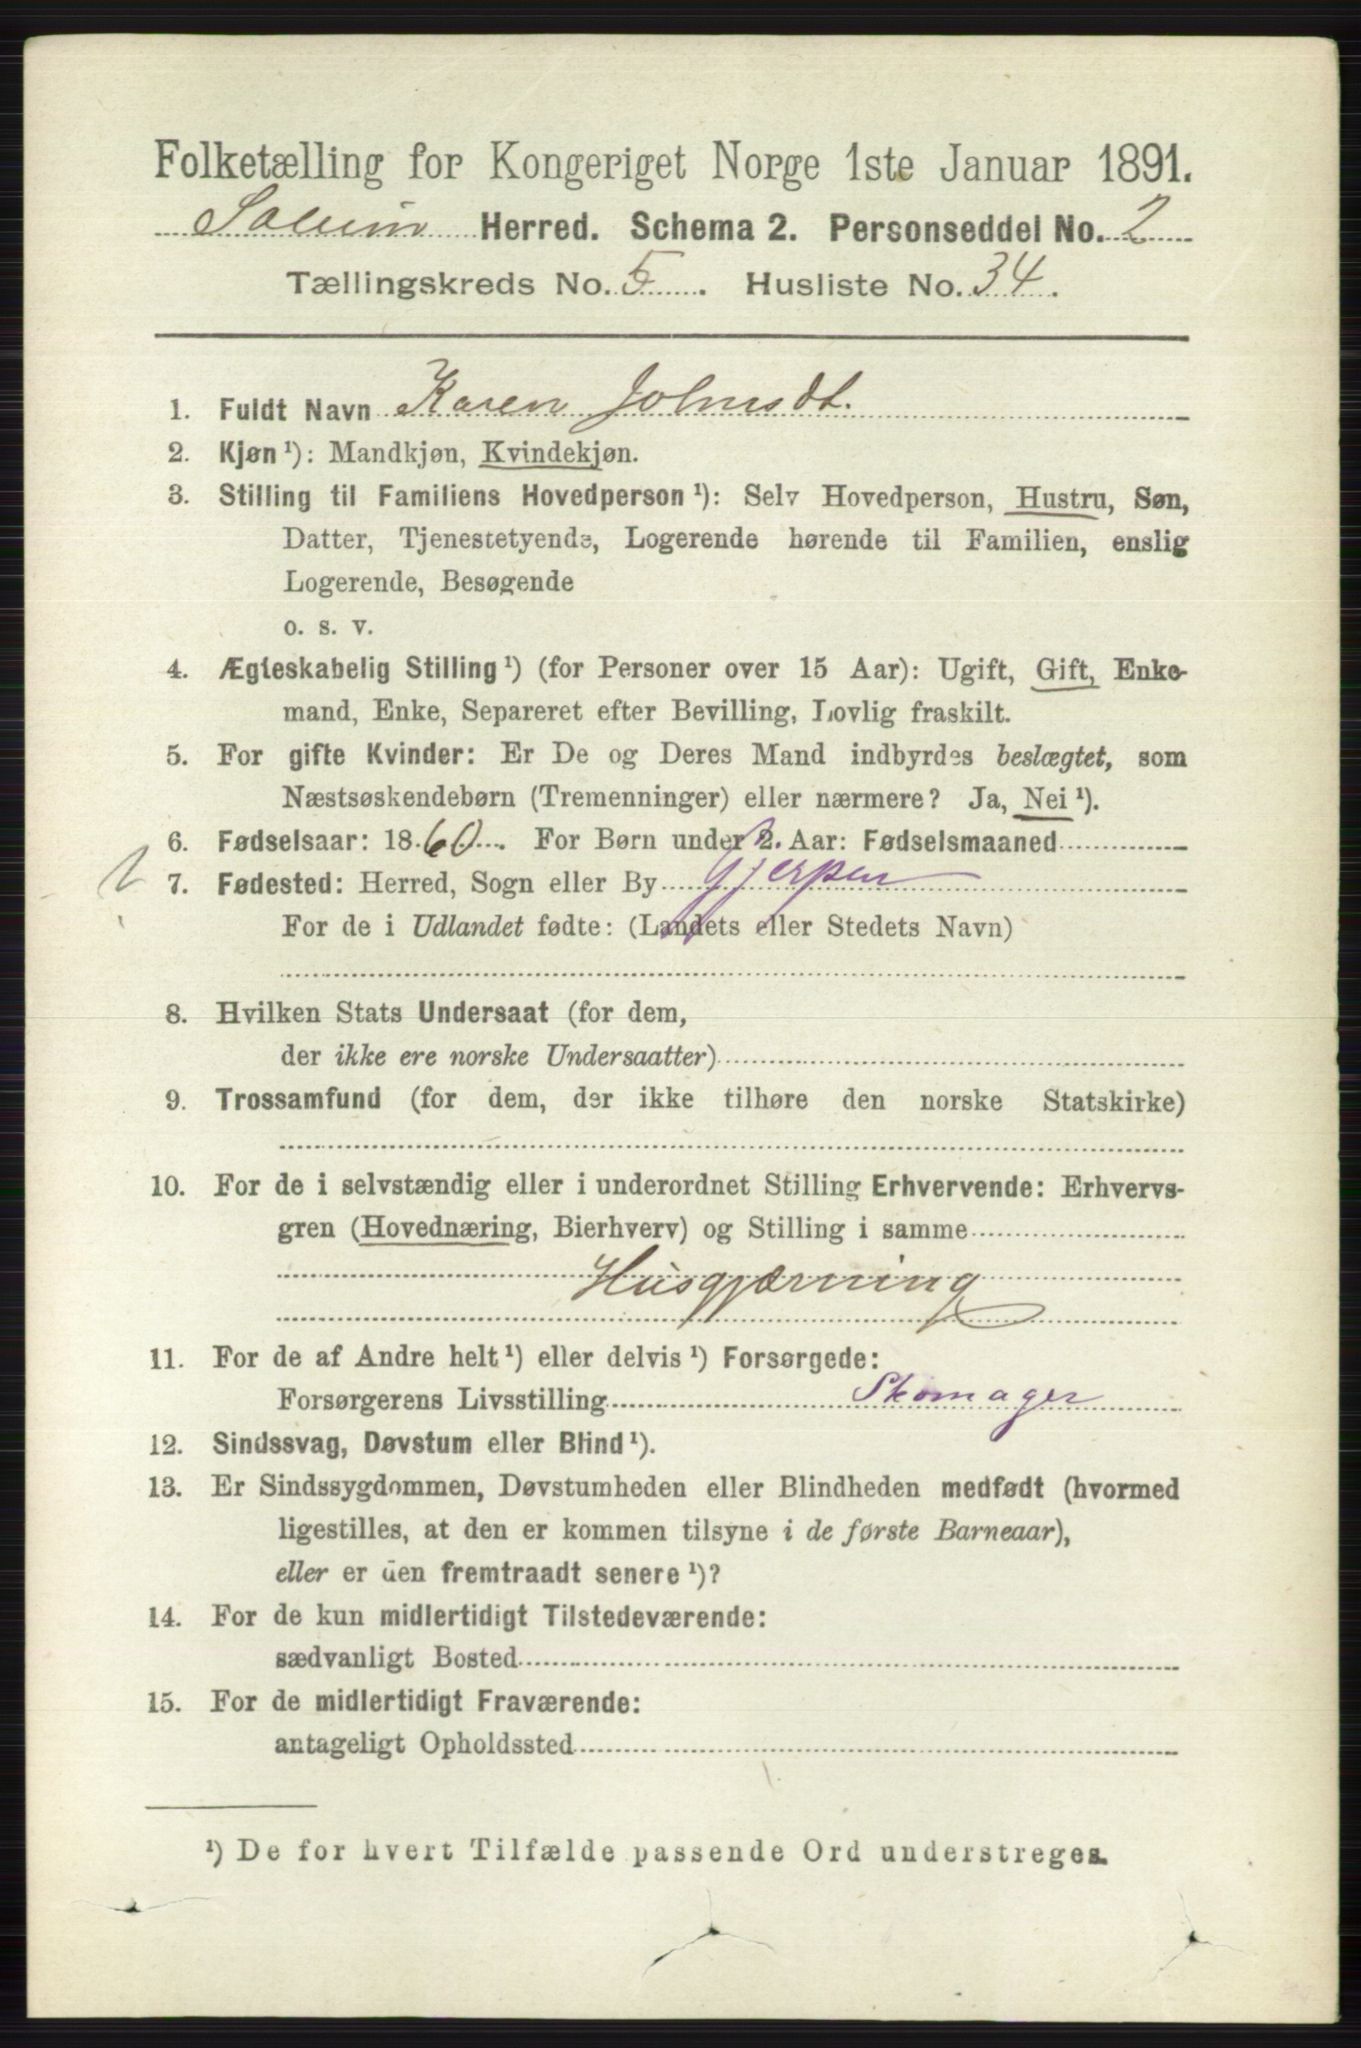 Folketælling for Kongeriget Norge 1ste Januar 1891.
Solum Herred. Schema 2. Personseddel No. 2
Tællingskreds No. 5. Husliste No. 34.
1. Fuldt Navn Karen Johnsdt.
2. Kjøn ¹): Mandkjøn, Kvindekjøn.
3. Stilling til Familiens Hovedperson ¹): Selv Hovedperson, Hustru, Søn,
Datter, Tjenestetyende, Logerende hørende til Familien, enslig
Logerende, Besøgende
o. s. v.
4. Ægteskabelig Stilling ¹) (for Personer over 15 Aar): Ugift, Gift, Enke-
mand, Enke, Separeret efter Bevilling, Lovlig fraskilt.
5. For gifte Kvinder: Er De og Deres Mand indbyrdes beslægtet, som
Næstsøskendebørn (Tremenninger) eller nærmere? Ja, Nei ¹).
6. Fødselsaar: 1860. For Børn under 2 Aar: Fødselsmaaned
7. Fødested: Herred, Sogn eller By Gjerpen
For de i Udlandet fødte: (Landets eller Stedets Navn)
8. Hvilken Stats Undersaat (for dem,
der ikke ere norske Undersaatter)
9. Trossamfund (for dem, der ikke tilhøre den norske Statskirke)
10. For de i selvstændig eller i underordnet Stilling Erhvervende: Erhvervs-
gren (Hovednæring, Bierhverv) og Stilling i samme
Husgjærning
11. For de af Andre helt ¹) eller delvis ¹) Forsørgede:
Forsørgerens Livsstilling Skomager
12. Sindssvag, Døvstum eller Blind ¹).
13. Er Sindssygdommen, Døvstumheden eller Blindheden medfødt (hvormed
ligestilles, at den er kommen tilsyne i de første Barneaar),
eller er den fremtraadt senere ¹)?
14. For de kun midlertidigt Tilstedeværende:
sædvanligt Bosted
15. For de midlertidigt Fraværende:
antageligt Opholdssted
¹) De for hvert Tilfælde passende Ord understreges.